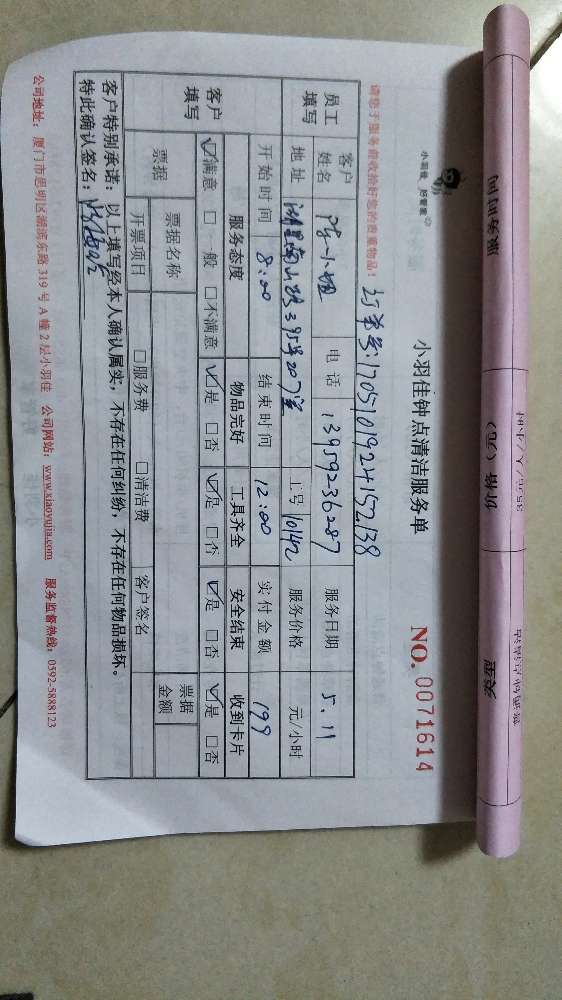 小羽佳 好管家
小羽佳钟点清洁服务单
NO. 0071614
请您于服务前收拾好您的贵重物品!
订单号:1705101924152138
员工填写
客户姓名 小姐 电话 13959236287 服务日期 5.11
地址 湖里南山路395号207室 工号 10142 服务价格 元/小时
开始时间 8:00 结束时间 12:00 实付金额 199
客户填写
服务态度 物品完好 工具齐全 安全结束 收到卡片
☑满意 □一般 □不满意 ☑是 □否 ☑是 □否 ☑是 □否 ☑是 □否
票据 票据名称 票据金额
开票项目 □服务费 □清洁费 客户签名
客户特别承诺:以上填写经本人确认属实,不存在任何纠纷,不存在任何物品损坏。
特此确认签名:
公司地址:厦门市思明区湖滨东路319号A幢2层小羽佳 公司网站:www.xiaoyujia.com 服务监督热线:0592-5888123
服务时间
价格(元)